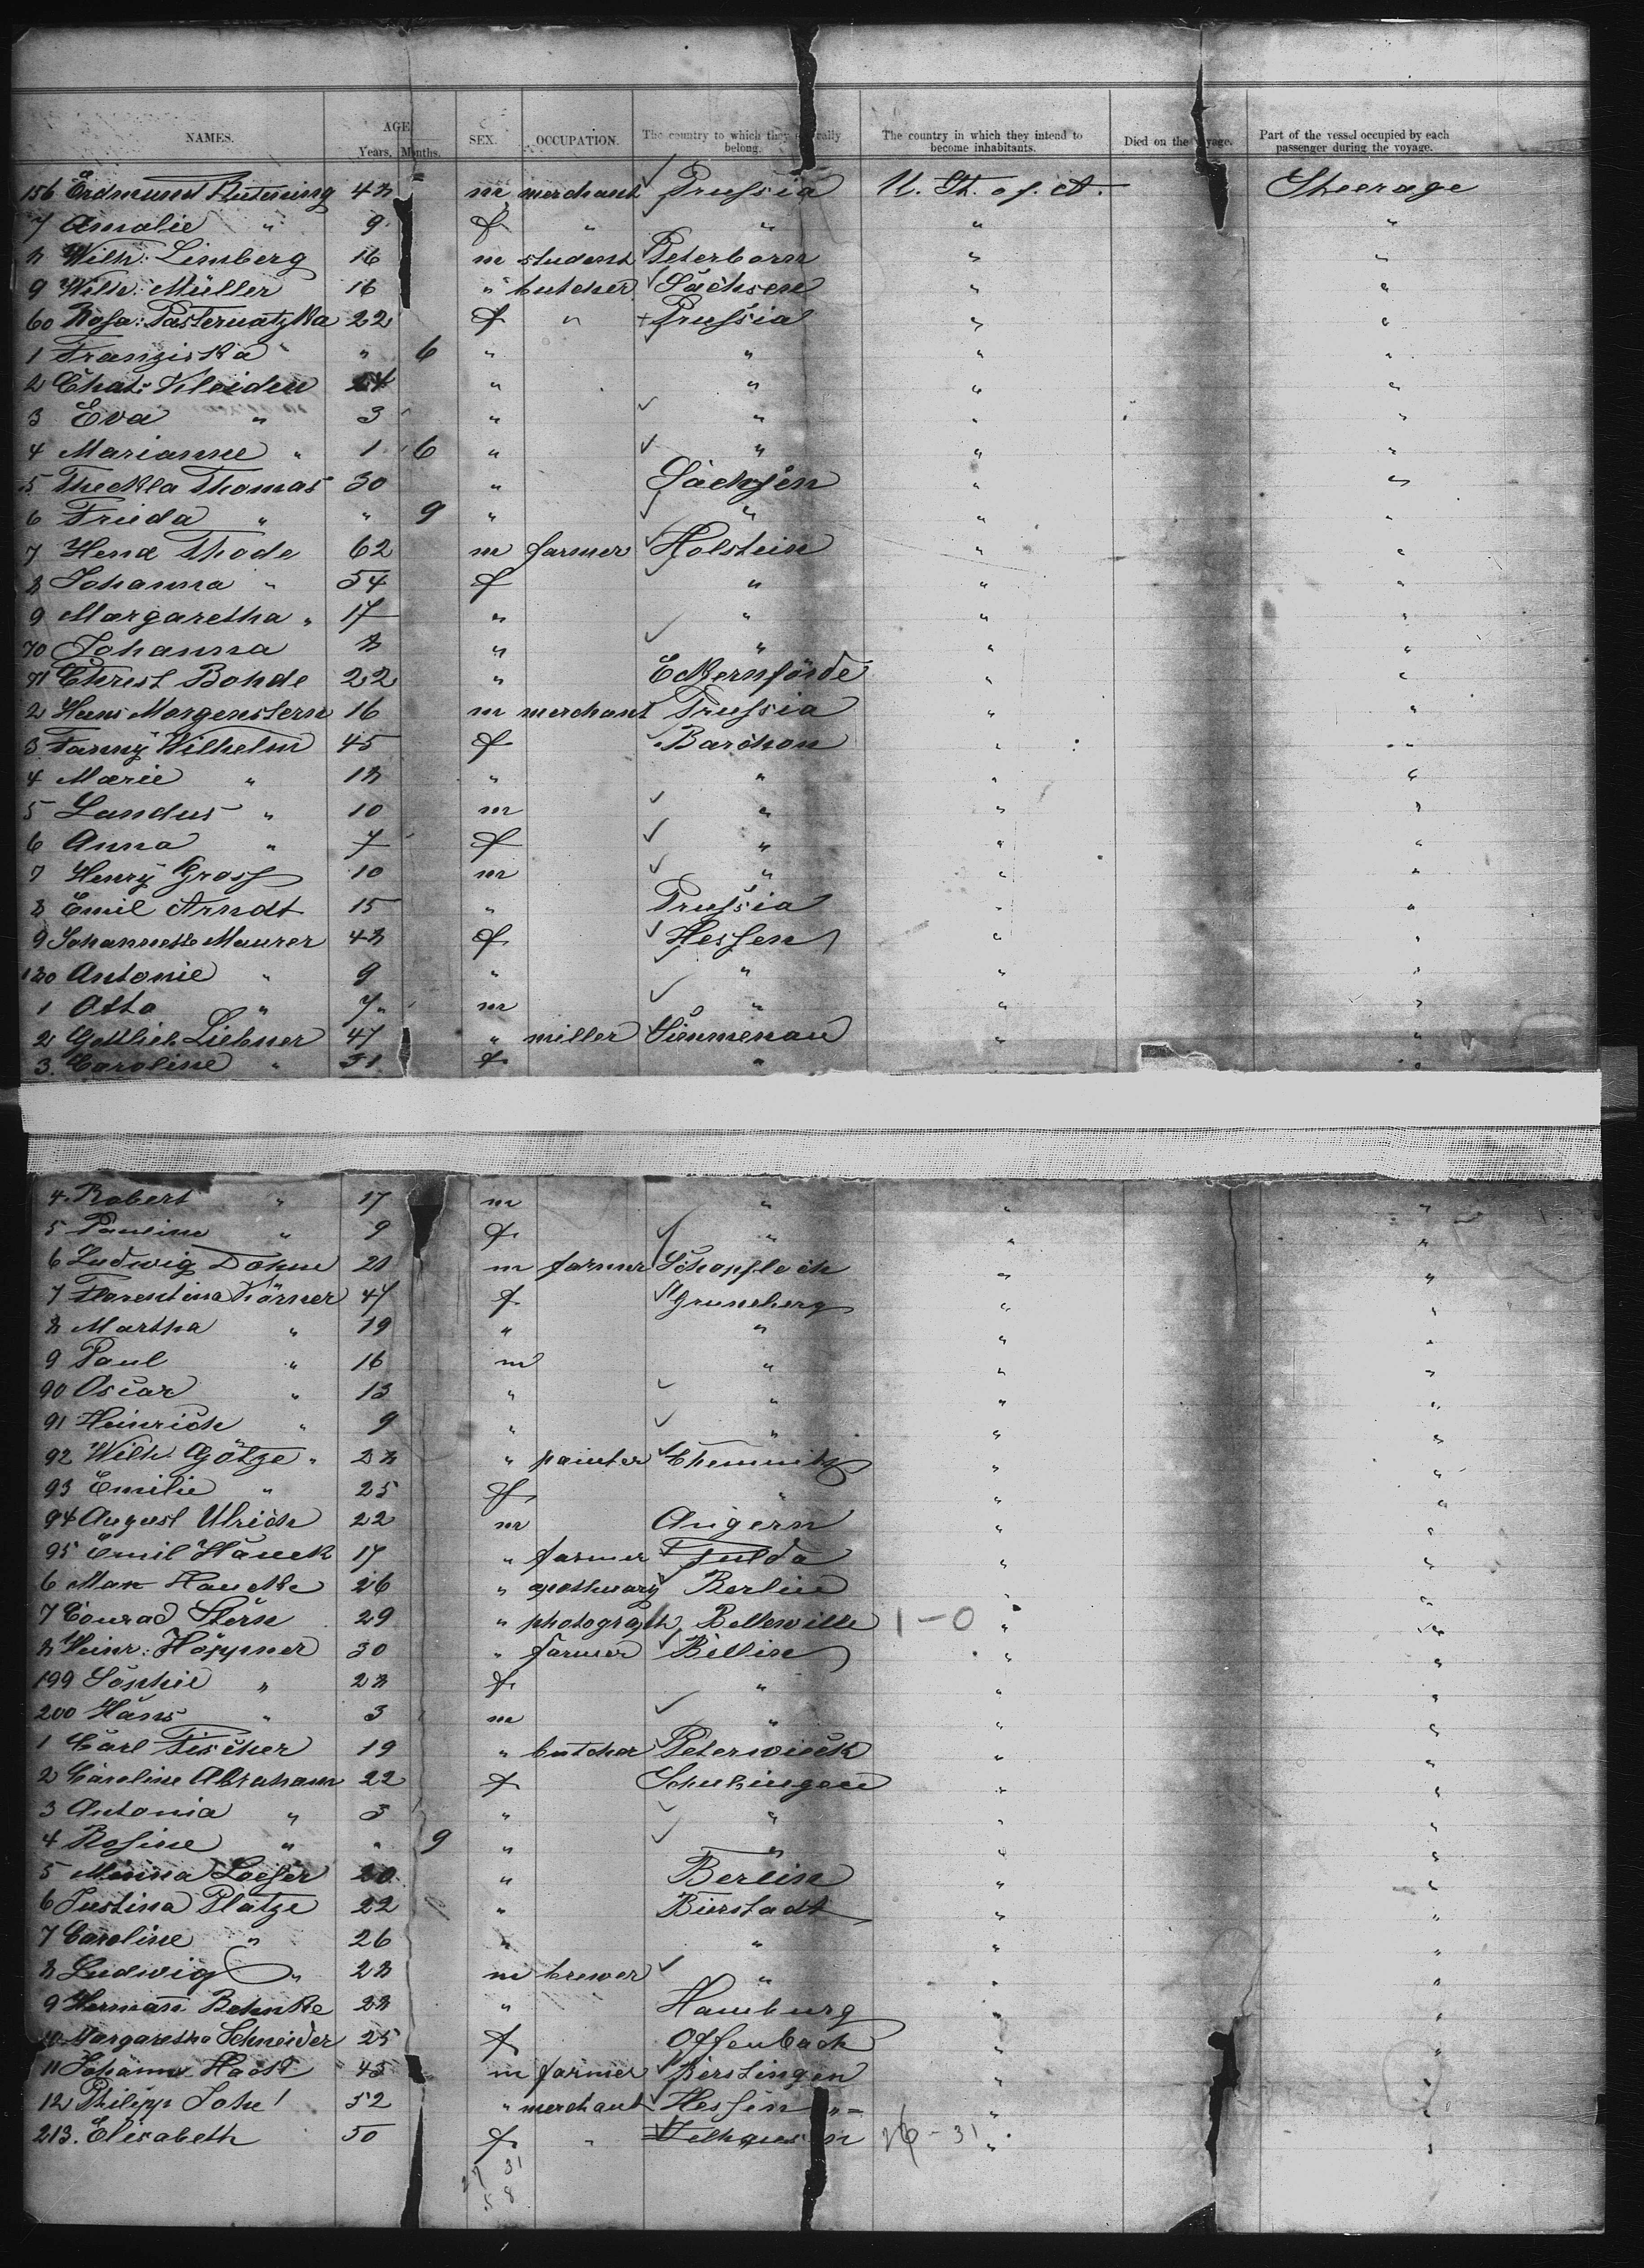 NAMES. AGE Years, Months. SEX. OCCUPATION. The country to which they belong. The country in which they intend to become inhabitants. Died on the voyage. Part of the vessel occupied by each passenger during the voyage.
156 Erdmund 48 m merchant Prussia U. St. of A. Steerage
7 Amalie " 9 f " " " "
8 Wilh: Limberg 16 m student Peterborn " "
9 Wilh: Müller 16 " butcher Sachsen " "
60 Rosa: Pasternatzka 22 f " Prussia " "
1 Franziska " " 6 " " " "
2 Chat: 24 " " " "
3 Eva " 3 " " " "
4 Marianne " 1 6 " " " "
5 Theckla Thomas 30 " Sachsen " "
6 Frieda " " 9 " " " "
7 Henr Thode 62 m farmer Holstein " "
8 Johanna " 54 f " " "
9 Margaretha " 17 " " " "
70 Johanna 8 " " " "
71 Christ Bohde 22 " Eckernförde " "
2 Hans Morgenstern 16 m merchant Prussia " "
3 Fanny Wilhelm 45 f Barchon " "
4 Marie " 18 " " " "
5 Landus " 10 m " " "
6 Anna " 7 f " " "
7 Henry Gross 10 m " " "
8 Emil Arndt 15 " Prussia " "
9 Johannette Maurer 48 f Hessen " "
180 Antonie " 9 " " " "
1 Otto " 7 m " " "
2 Gottlieb Liebner 47 " miller Simmenau " "
3. Caroline " 51 f " "
4. Robert " 17 m " " "
5 Pauline " 9 f " " "
6 Ludwig Dohm 20 m farmer Schopfloch " "
7 Florentina Körner 47 f Gruneberg " "
8 Martha " 19 " " " "
9 Paul " 16 m " " "
90 Oscar " 13 " " " "
91 Heinrich " 9 " " " "
92 Wilh. Götze " 28 " painter Chemnitz " "
93 Emilie " 25 f " " "
94 August Ulrich 22 m Angern " "
95 Emil Hauck 17 " farmer Fulda " "
6 Max 26 " apothecary Berlin " "
7 Conrad Stern 29 " photograph Belleville 1-0 " "
8 Heinr: Höppner 30 " farmer Billin " "
199 Sophie " 28 f " " "
200 Hans " 3 m " " "
1 Carl Fischer 19 " butcher Peterwieck " "
2 Caroline Abraham 22 f " "
3 Antonia " 3 " " " "
4 Rosine " " 9 " " " "
5 Minna Loeser 20 " Berlin " "
6 Justina Platze 22 " Bürstadt " "
7 Caroline " 26 " " " "
8 Ludwig " 28 m brewer " " "
9 Hermann Behnke 28 " Hamburg " "
10 Margaretha Schneider 25 f Offenbach " "
11 Johann 45 m farmer " "
12 Philipp 52 " merchant Hessen " "
213. Elisabeth 50 f " - 31 " "
27 31
58